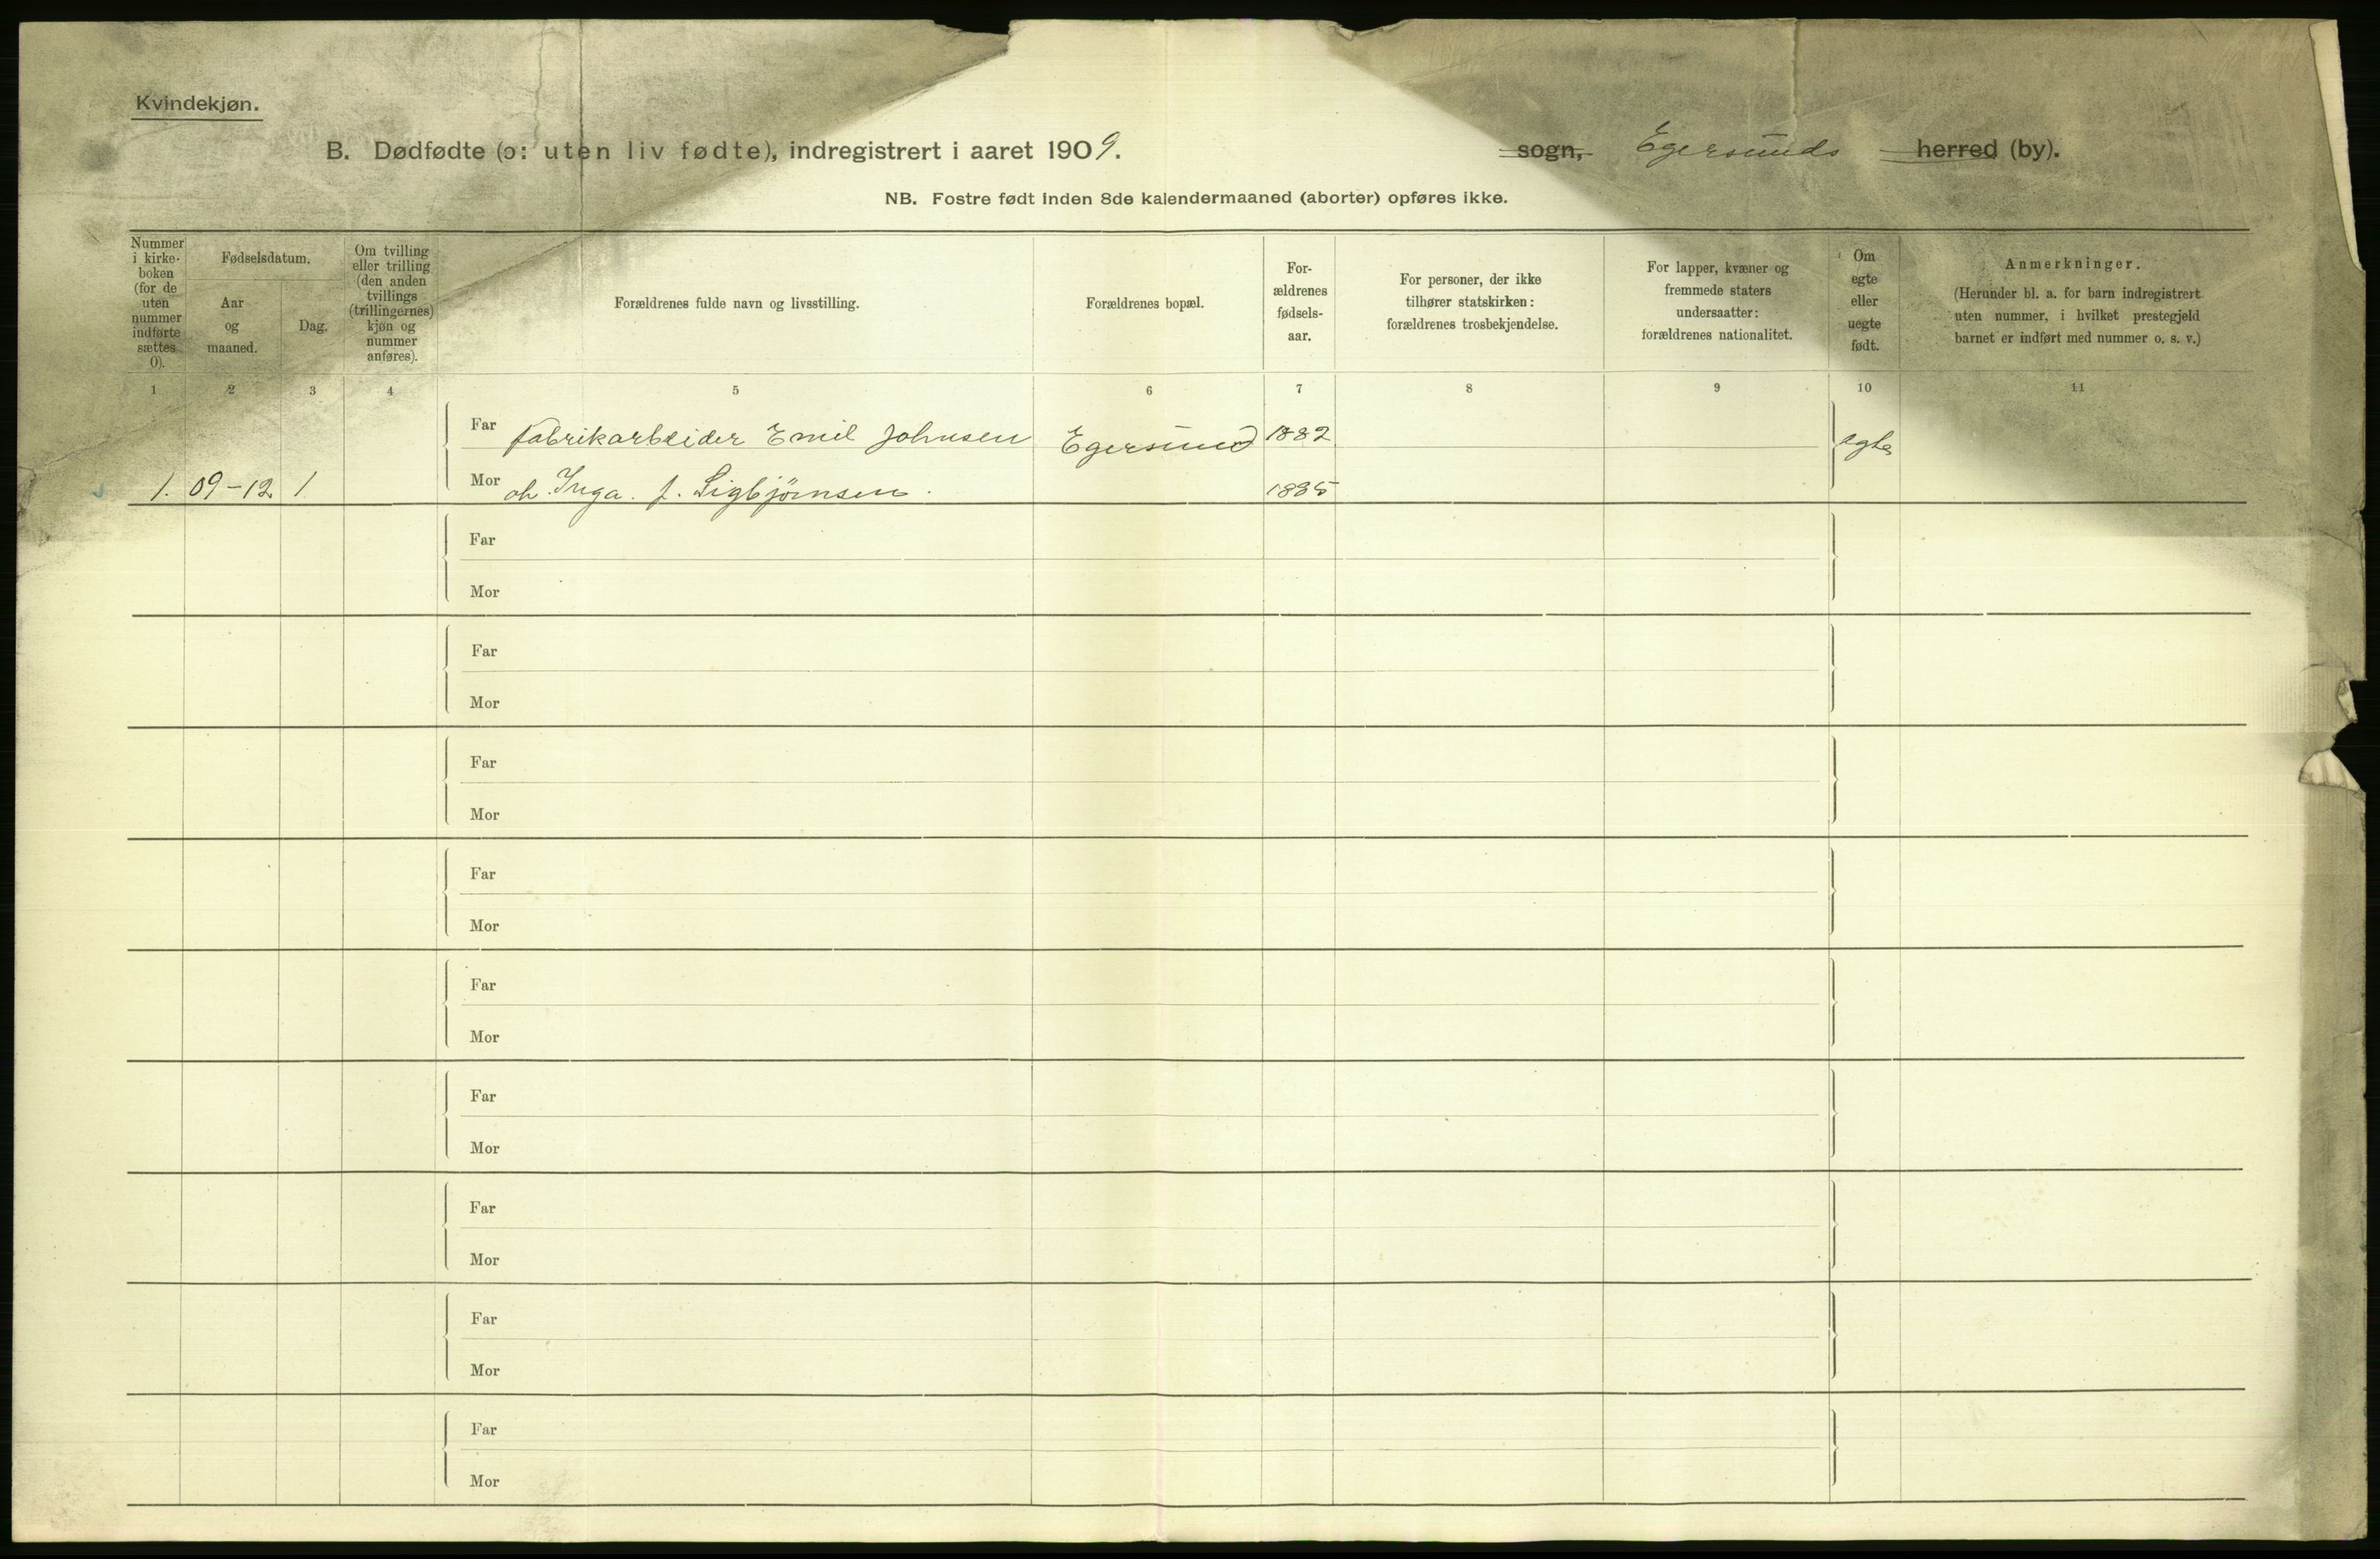 Kvindekjøn.
B. Dødfødte (ɔ: uten liv fødte), indregistrert i aaret 1909. sogn, Egersunds herred (by).
NB. Fostre født inden 8de kalendermaaned (aborter) opføres ikke.
Nummer
i kirke-
boken
(for de
uten
nummer
indførte
sættes
0).
Fødselsdatum.
Aar
og
maaned.
Dag.
Om tvilling
eller trilling
(den anden
tvillings
(trillingernes)
kjøn og
nummer
anføres).
Forældrenes fulde navn og livsstilling.
Forældrenes bopæl.
For-
ældrenes
fødsels-
aar.
For personer, der ikke
tilhører statskirken:
forældrenes trosbekjendelse.
For lapper, kvæner og
fremmede staters
undersaatter:
forældrenes nationalitet.
Om
egte
eller
uegte
født.
Anmerkninger.
(Herunder bl. a. for barn indregistrert
uten nummer, i hvilket prestegjeld
barnet er indført med nummer o. s. v.)
1 2 3 4 5 6 7 8 9 10 11
Far Fabrikarbeider Emil Johnsen Egersund 1882 egte
1. 09-12. 1 Mor oh. Inga f. Sigbjörnsen. 1885
Far
Mor
Far
Mor
Far
Mor
Far
Mor
Far
Mor
Far
Mor
Far
Mor
Far
Mor
Far
Mor